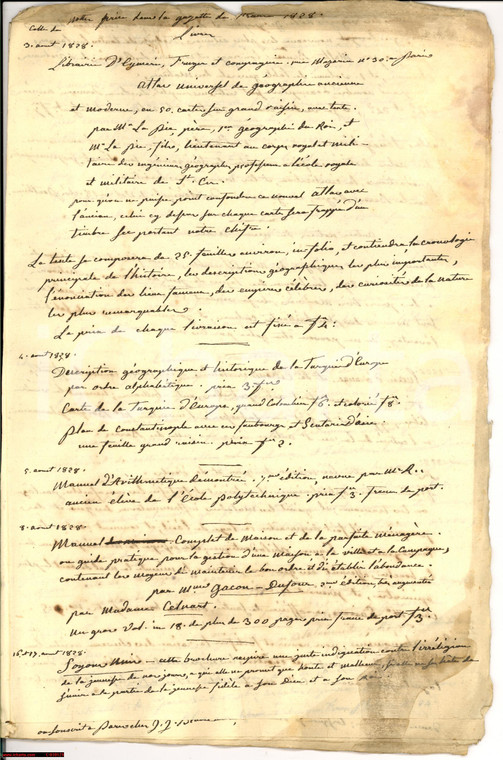 notes prises dans la gazette de France 1828.
Livres
Celle du
3. aout 1828.
Librairie D'Eymerie, Fruger et compagnie. rue Mazarine n° 30. a Paris
Atlas universel de géographie ancienne
et moderne, en 50. cartes sur grand raisin, avec texte.
par Mr. La Pie, père, 1er géographe du Roi, et
Mr. La Pie, fils, lieutenant au corps royal et mili-
taire des ingénieurs géographes, professeur a l'école royale
et militaire de St. Cyr.
pour qu'on ne puisse point confondre ce nouvel Atlas avec
l'ancien, celui cy dessus sur chaque carte sera frappé d'un
timbre sec portant notre chiffre.
Le texte se composera de 25. feuilles environ, in folio, et contiendra la cronologie
principale de l'histoire, les descriptions géographiques les plus importantes,
l'énonciation des lieux fameux, des empires célèbres, des curiosités de la nature
les plus remarquables.
Le prix de chaque livraison est fixé a f 4.
4. aout 1828.
Description géographique et historique de la Turquie d'Europe
par ordre alphabétique. prix 3. fr
Carte de la Turquie d'Europe, grand Colombier f 6. et colorié f 8.
Plan de Constantinople avec ses faubourgs et Scutari d'asie.
une feuille grand raisin. prix fr 2.
5. aout 1828.
Manuel d'Arithmetique Démontrée. 7me édition, revue par Mr. R..
ancien élève de l'école polytechnique. prix f 3. franc de port.
8. aout 1828.
Manuel Complet de Maison et de la parfaite Ménagère.
ou guide pratique pour la gestion d'une maison a la ville et a la Campagne,
contenant les moyens de maintenir le bon ordre et d'établir l'abondance.
par Mme Gacon-Dufour, 2me édition, augmentée
par Madame Celnart.
Un gros Vol. in 18. de plus de 300 pages prix franc de port f 3.
16. et 17. aout 1828.
Soyons Unis - cette brochure respire une juste indignation contre l'irréligion
de la jeunesse de nos jours, a qui elle ne promet que honte et malheur,
a la jeunesse fidèle a son Dieu et a son Roi
on souscrit a Paris chez J. J.